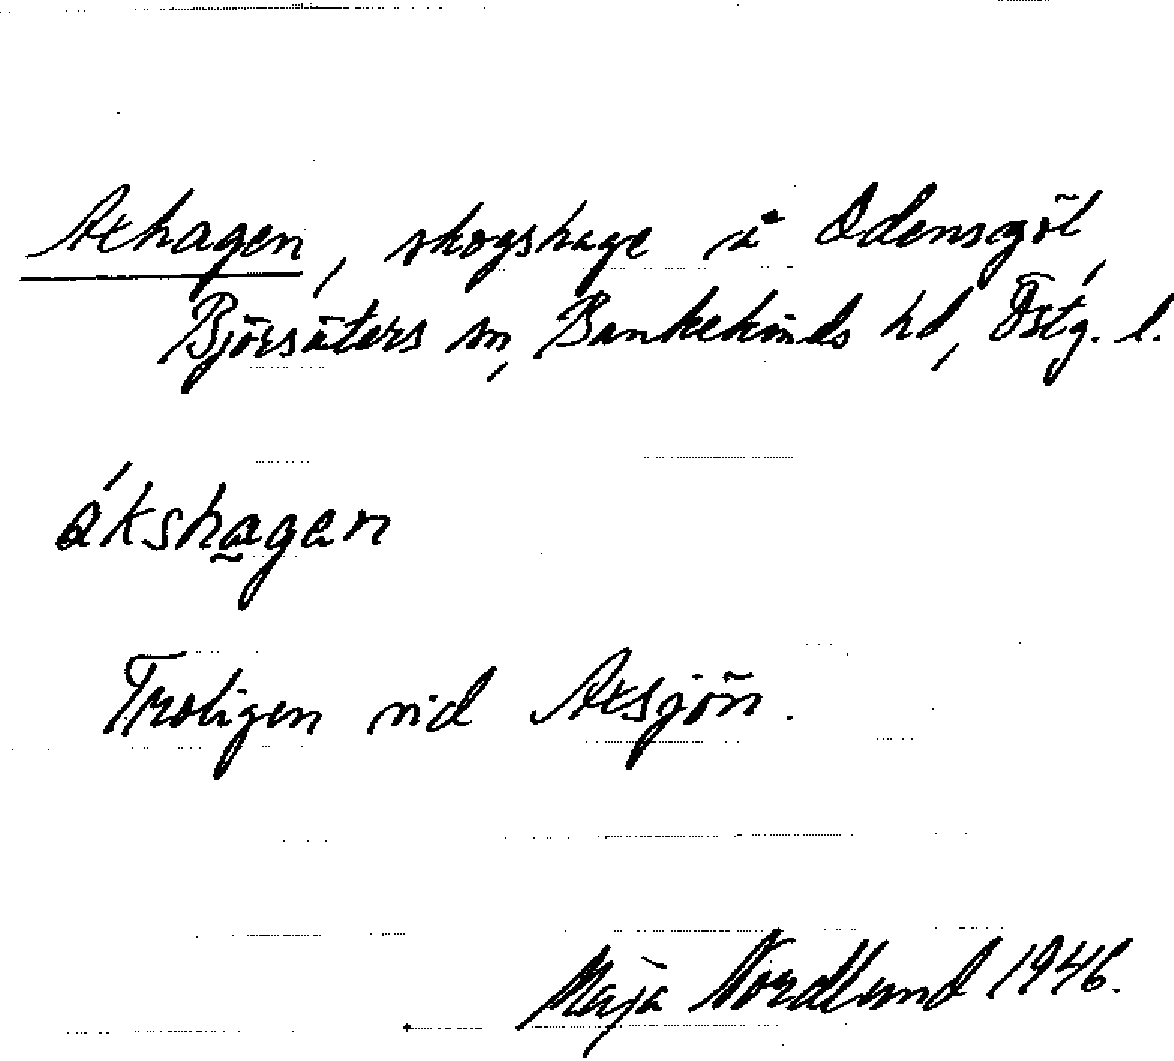 Axhagen, skogshage å Odensgöl,
Björsäters sn, Bankekinds hd, Östg. l.
ákshagen
Troligen vid Axsjön.
Maja Nordlund 1946.